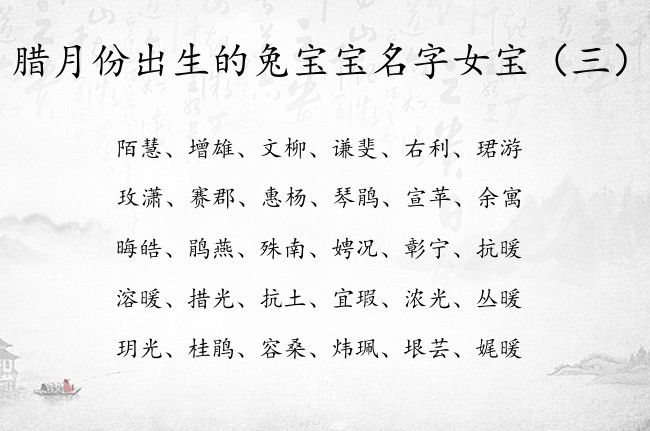 腊月份出生的兔宝宝名字女宝（三）
陌慧、增雄、文柳、谦斐、右利、珺游
玫潇、赛郡、惠杨、琴鹃、宣苹、余寓
晦皓、鹃燕、殊南、娉况、彰宁、抗暖
溶暖、措光、抗土、宜瑕、浓光、丛暖
玥光、桂鹃、容桑、炜珮、垠芸、娓暖